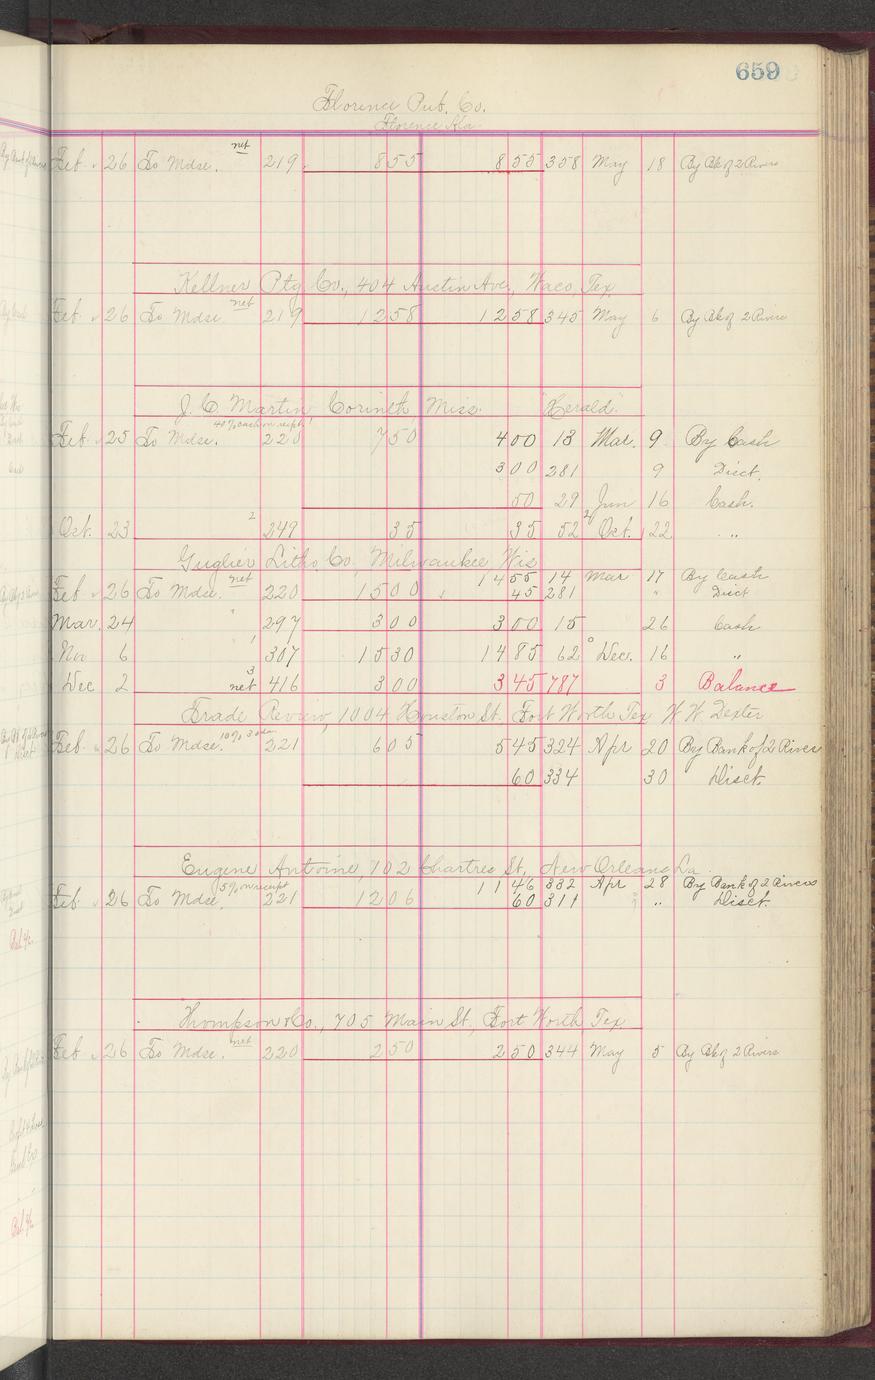 659
Florence Pub. Co.
Florence Ala.
Feb 26 To Mdse. net 219 855 855 358 May 18 By Bk of 2 Rivers
Kellner Ptg Co., 404 Austin Ave., Waco, Tex.
Feb 26 To Mdse net 219 1258 1258 345 May 6 By Bk of 2 Rivers
J. C. Martin, Corinth, Miss. "Herald"
Feb 25 To Mdse. 40% cash on recpt. 220 750 400 13 Mar. 9 By Cash
300 281 9 Disct.
50 29 Jun 16 Cash.
Oct. 23 2 249 35 35 52 2 Oct. 22 "
Litho Co., Milwaukee, Wis
1455 14 Mar 17 By Cash
Feb 26 To Mdse. net 220 1500 45 281 " Disct
Mar. 24 " 297 300 300 15 26 Cash
Nov 6 " 1 307 1530 1485 62 Dec. 16 "
Dec 2 3 net 416 300 345 787 3 Balance
Trade Review, 1004 Houston St. Fort Worth Tex W. W. Dexter
Feb 26 To Mdse. 10% 30 da 221 605 545 324 Apr 20 By Bank of 2 Rivers
60 334 30 Disct.
Eugene Antoine, 702 Chartres St, New Orleans La.
1146 332 Apr 28 By Bank of 2 Rivers
Feb 26 To Mdse. 5% on receipt 221 1206 60 311 " Disct.
Thompson & Co., 705 Main St., Fort Worth Tex
Feb 26 To Mdse. net 220 250 250 344 May 5 By Bk of 2 Rivers